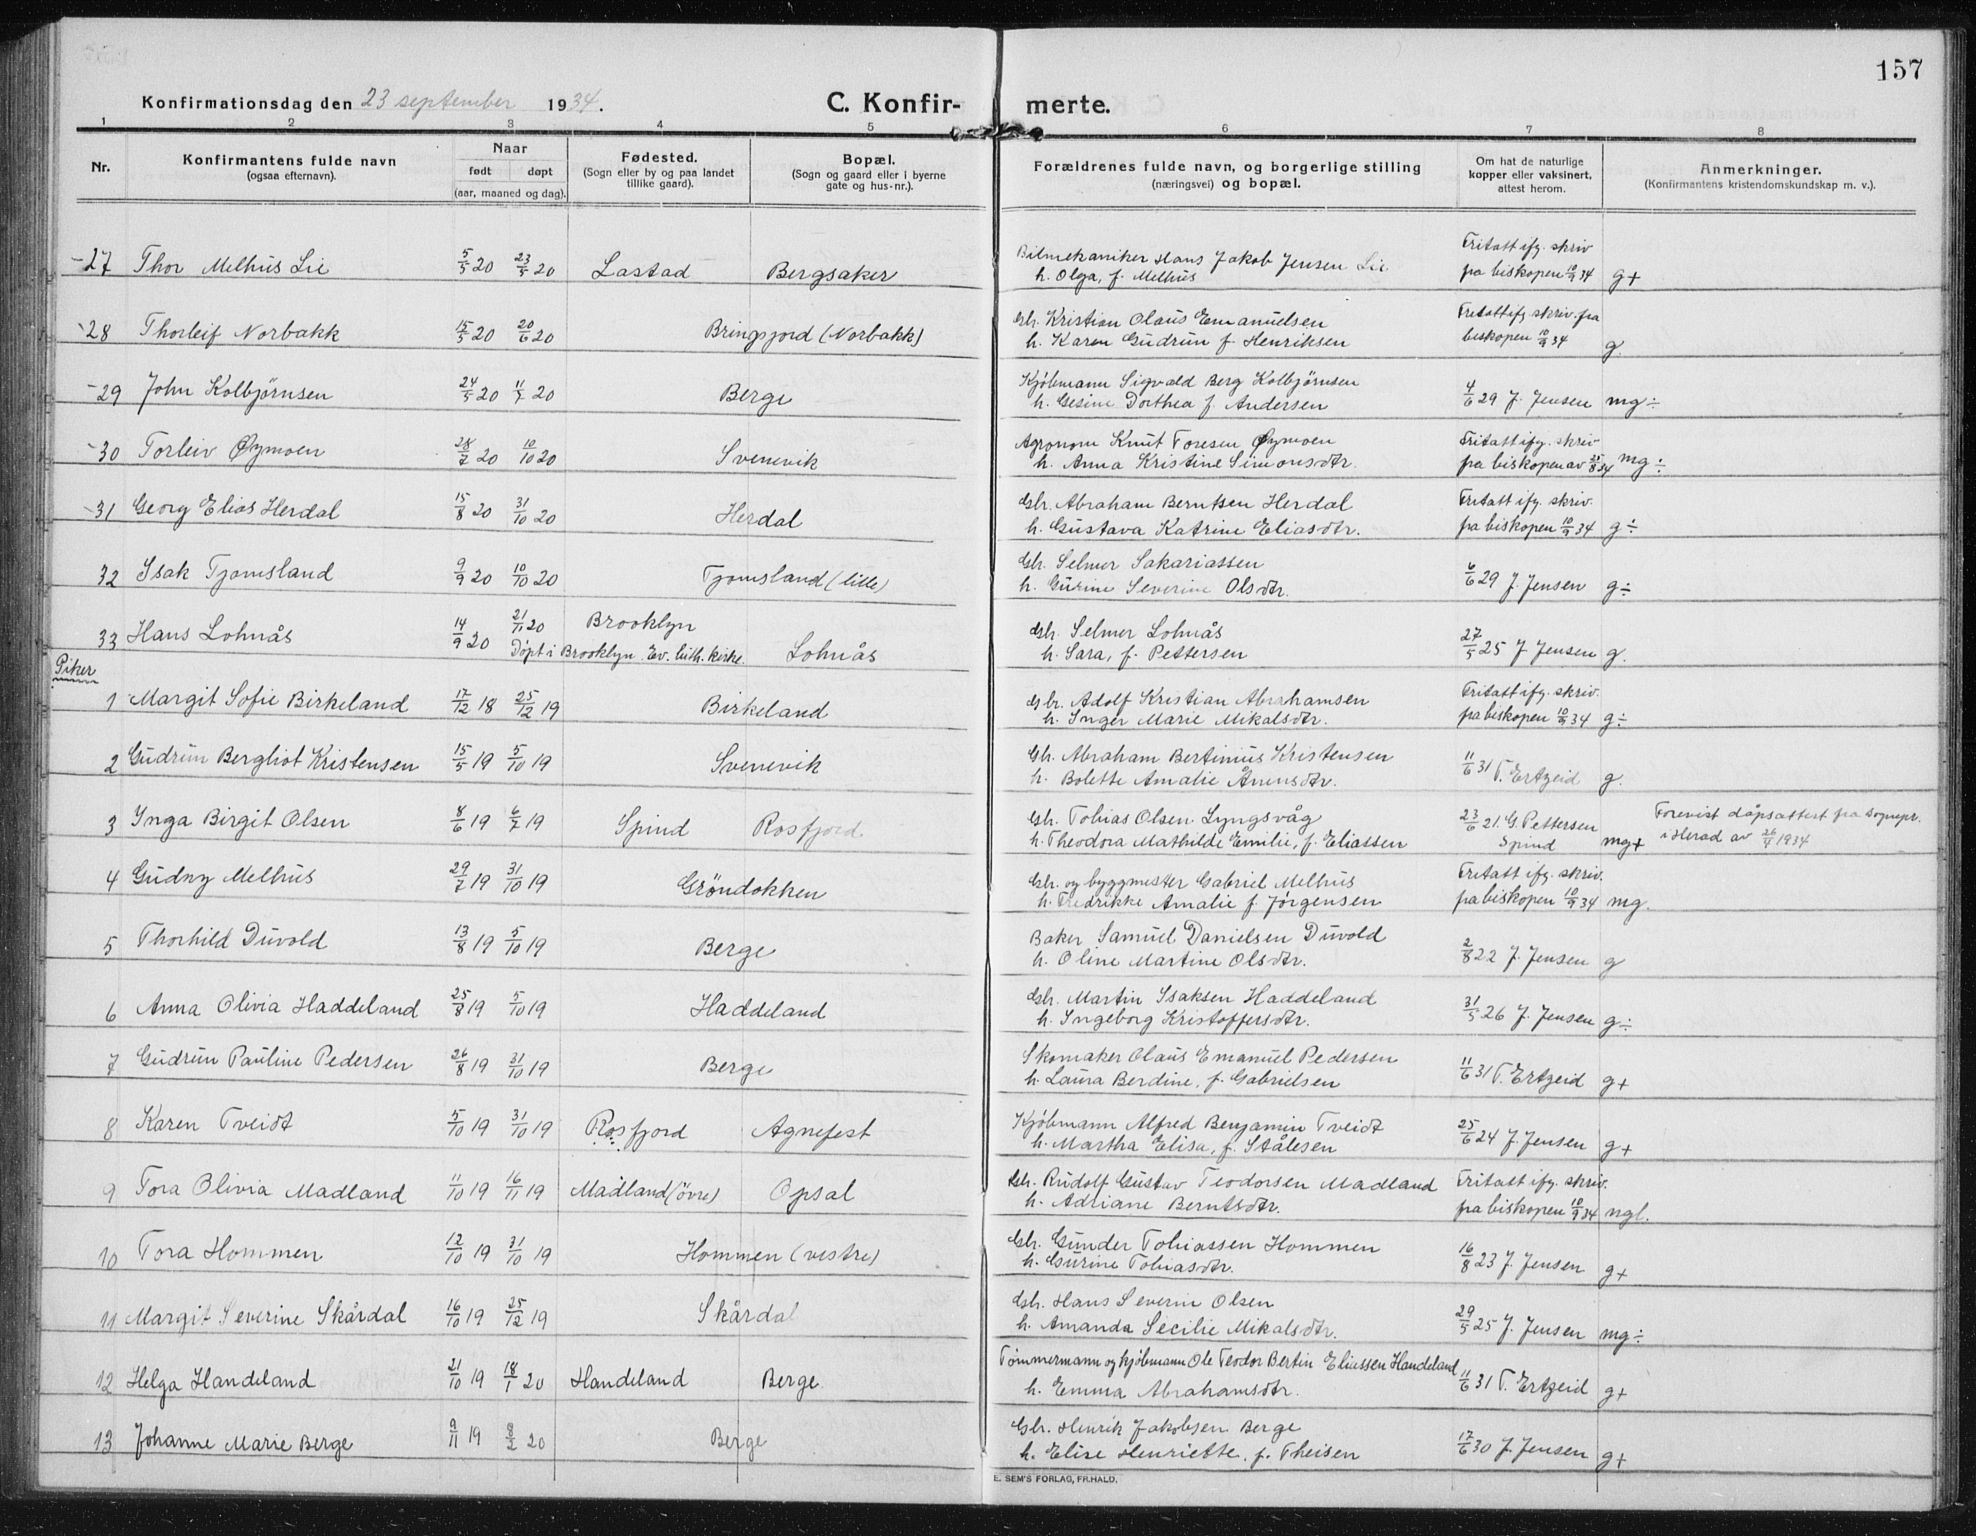 157
Konfirmationsdag den 23 september 1934.
C. Konfirmerte.
1 2 3 4 5 6 7 8
Nr.
Konfirmantens fulde navn
(ogsaa efternavn).
Naar
født døpt
(aar, maaned og dag).
Fødested.
(Sogn eller by og paa landet
tillike gaard).
Bopæl.
(Sogn og gaard eller i byerne
gate og hus-nr.).
Forældrenes fulde navn, og borgerlige stilling
(næringsvei) og bopæl.
Om hat de naturlige
kopper eller vaksinert,
attest herom.
Anmerkninger.
(Konfirmantens kristendomskundskap m. v.).
27 Thor Melhus Lie 5/5 20 23/5 20 Lastad Bergsaker Bilmekaniker Hans Jakob Jensen Lie Fritatt ifg. skriv
h. Olga, f. Melhus fra biskopen 10/9 34 g+
28 Thorleif Norbakk 15/5 20 20/6 20 Bringsjord (Norbakk) Gbr. Kristian Olaus Emanuelsen Fritatt ifg. skriv. fra
h. Karen Gudrun f. Henriksen biskopen 10/9 34 g.
29 John Kolbjørnsen 24/5 20 11/7 20 Berge Kjøbmann Sigvald Berg Kolbjørnsen
h. Gesine Dorthea f. Andersen 4/6 29 J. Jensen mg÷
30 Torleiv Øymoen 28/7 20 10/10 20 Svenevik Agronom Knut Toresen Øymoen Fritatt ifg. skriv
h. Anna Kristine Simonsdtr. fra biskopen av 25/8 34 mg÷
31 Georg Elias Herdal 15/8 20 31/10 20 Herdal Gbr. Abraham Berntsen Herdal Fritatt ifg. skriv.
h. Gustava Katrine Eliasdtr. fra biskopen 10/9 34 g÷
32 Isak Tjomsland 9/9 20 10/10 20 Tjomsland (lille) Gbr. Selmer Sakariassen
h. Gurine Severine Olsdtr. 6/6 29 J. Jensen g÷
33 Hans Lohnås 14/9 20 21/11 20 Brooklyn Gbr. Selmer Lohnås
Døpt i Brooklyn Ev. luth. kirke. Lohnås h. Sara, f. Pettersen 27/5 25 J Jensen g.
Piker
1 Margit Sofie Birkeland 17/12 18 25/12 19 Birkeland Gbr. Adolf Kristian Abrahamsen Fritatt ifg. skriv.
h. Inger Marie Mikalsdtr. fra biskopen 10/9 34 g÷
2 Gudrun Bergliot Kristensen 15/5 19 5/10 19 Svenevik Gbr. Abraham Bertinius Kristensen
h. Bolette Amalie Ånensdtr. 11/6 31 T. Ertzeid g.
3 Inga Birgit Olsen 8/6 19 6/7 19 Spind Rosfjord Gbr. Tobias Olsen Lyngsvåg 23/6 21. G. Pettersen Forevist dåpsattest fra sognepr.
h. Theodora Mathilde Emilie, f. Eliassen Spind mg+ i Herad av 26/4 1934
4 Gudny Melhus 29/7 19 31/10 19 Gröndokken Gbr. og byggmester Gabriel Melhus Fritatt ifg. skriv.
h. Fredrikke Amalie f. Jørgensen fra biskopen 10/9 34 mg.
5 Thorhild Duvold 13/8 19 5/10 19 Berge Baker Samuel Danielsen Duvold
h. Oline Martine Olsdtr. 2/8 22 J. Jensen g
6 Anna Olivia Haddeland 25/8 19 5/10 19 Haddeland Gbr. Martin Isaksen Haddeland
h. Ingeborg Kristoffersdtr. 31/5 26 J. Jensen g÷
7 Gudrun Pauline Pedersen 26/8 19 31/10 19 Berge Skomaker Olaus Emanuel Pedersen
h. Laura Berdine, f. Gabrielsen 11/6 31 T. Ertzeid g+
8 Karen Tveidt 5/10 19 31/10 19 Rosfjord Agnefest Kjøbmann Alfred Benjamin Tveidt
h. Martha Elisa, f. Stålesen 25/6 24 J. Jensen g+
9 Tora Olivia Madland 11/10 19 16/11 19 Madland (övre) Opsal Gbr. Rudolf Gustav Teodorsen Madland Fritatt ifg. skriv.
h. Adriane Berntsdtr. fra biskopen 10/9 34 ngl.
10 Tora Hommen 12/10 19 31/10 19 Hommen (vestre) Gbr. Gunder Tobiassen Hommen
h. Gurine Tobiasdtr. 16/8 23 J. Jensen g+
11 Margit Severine Skårdal 16/10 19 25/12 19 Skårdal Gbr. Hans Severin Olsen
h. Amanda Secilie Mikalsdtr. 29/5 25 J. Jensen mg÷
12 Helga Handeland 21/10 19 18/1 20 Handeland Berge Tømmermann og kjøbmann Ole Teodor Bertin Eliassen Handeland
h. Emma Abrahamsdtr. 11/6 31 T. Ertzeid g+
13 Johanne Marie Berge 9/11 19 8/2 20 Berge Gbr. Henrik Jakobsen Berge
h. Elise Henriette, f. Theisen 17/6 30 J. Jensen g+
E. SEM'S FORLAG, FR.HALD.